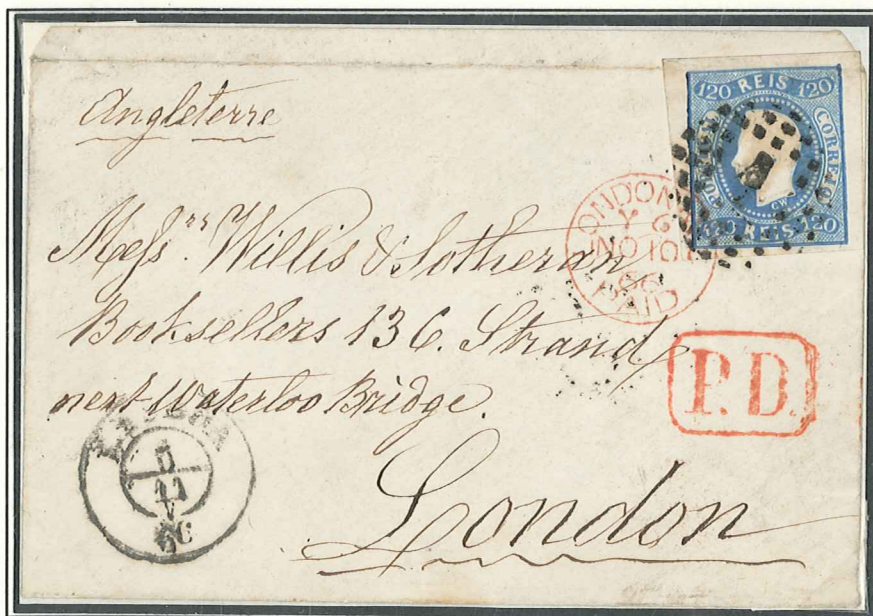 Angleterre
120 REIS 120
CORREIO
CW
120 REIS 120
LONDON
Y 6
NO 10
66
PAID
Messrs. Willis & Sotheran
Booksellers 136. Strand
next Waterloo Bridge.
P.D.
London
5
11